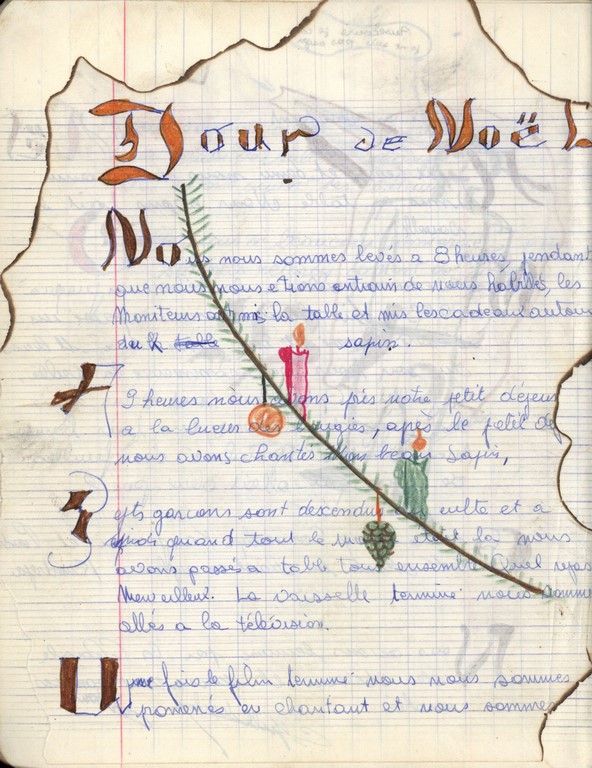 Jour de Noël
Nous nous sommes levés a 8 heures, pendant
que nous nous etions entrain de nous habillés, les
Moniteurs on mis la table et mis les cadeaux autour
du sapin.
A 9 heures nous avons pris notre petit déjeu
a la lueur des bougies, après le petit dej
nous avons chantes Mon beau Sapin,
garçons sont descendu au culte et a
midi quand tout le monde etait la nous
avons passés a table tous ensemble Quel repas
Merveilleux. La vaisselle terminé nous somme
allés a la télévision.
Une fois le film terminé nous nous sommes
pomenés en chantant et nous sommes